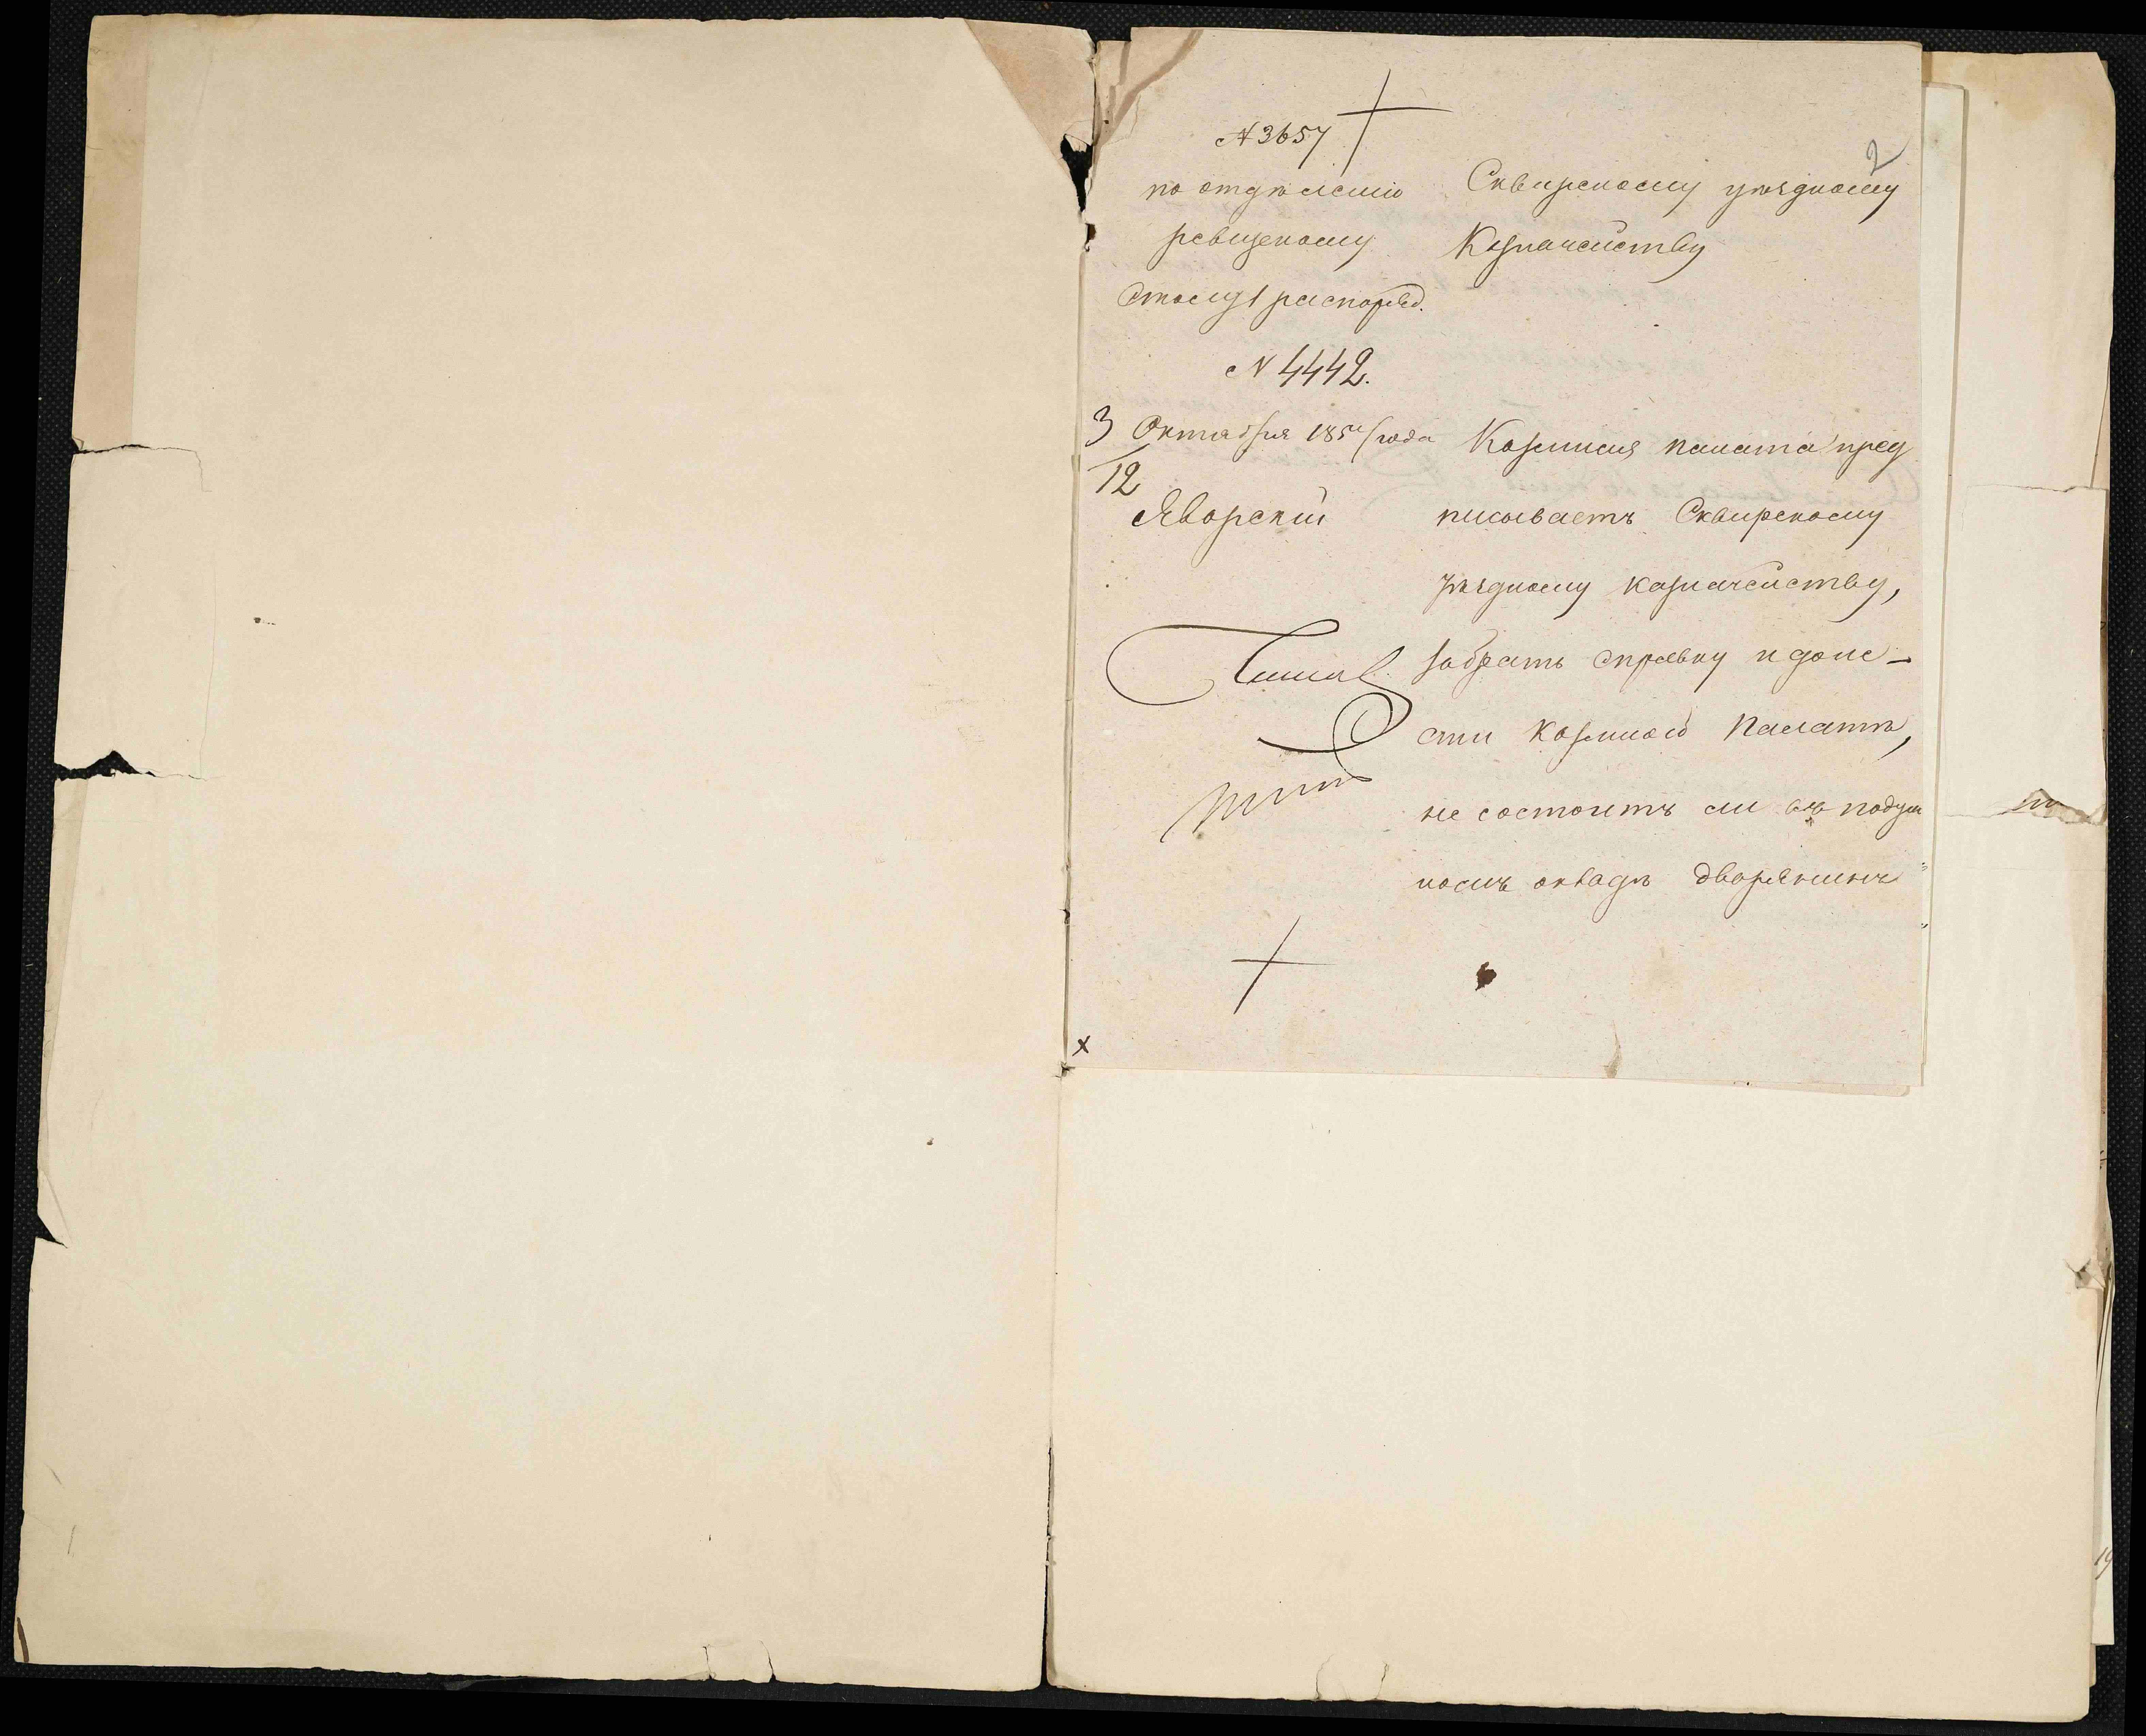 2
№ 3657
по отдѣленію
ревизскому
Столу 1 распоряд.
№ 4442.
3 Октября 185 года
12
Яворскій
Сквирскому уѣздному
Казначейству
Казенная палата пред
писываетъ Сквирскому
уѣздному казначейству,
забрать справку и доне-
сти казенной Палатѣ,
не состоитъ ли въ подуш
номъ окладѣ дворянинъ